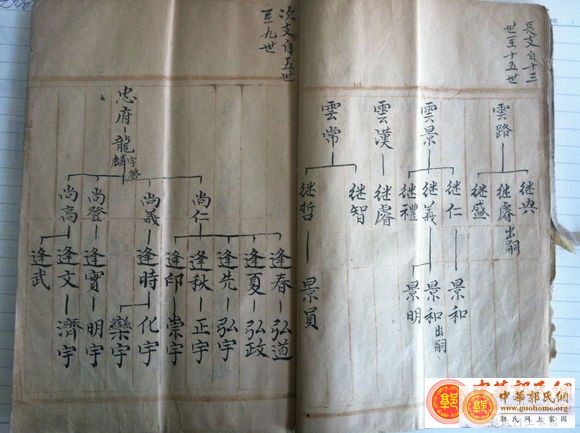 長支自十三
世至十五世
雲路
雲景
雲漢
雲常
继典
继睿出嗣
继盛
继仁
继義
继禮
继睿
继智
继哲
景和
景和出嗣
景明
景員
次支自五世
至九世
忠府
龍麟
尚仁
尚義
尚登
尚高
逢春
逢夏
逢先
逢秋
逢印
逢時
逢實
逢文
逢武
弘道
弘政
弘宇
正宇
崇宇
化宇
欒宇
明宇
濟宇
中華郭氏網
www.guohome.org
郭氏網上家園